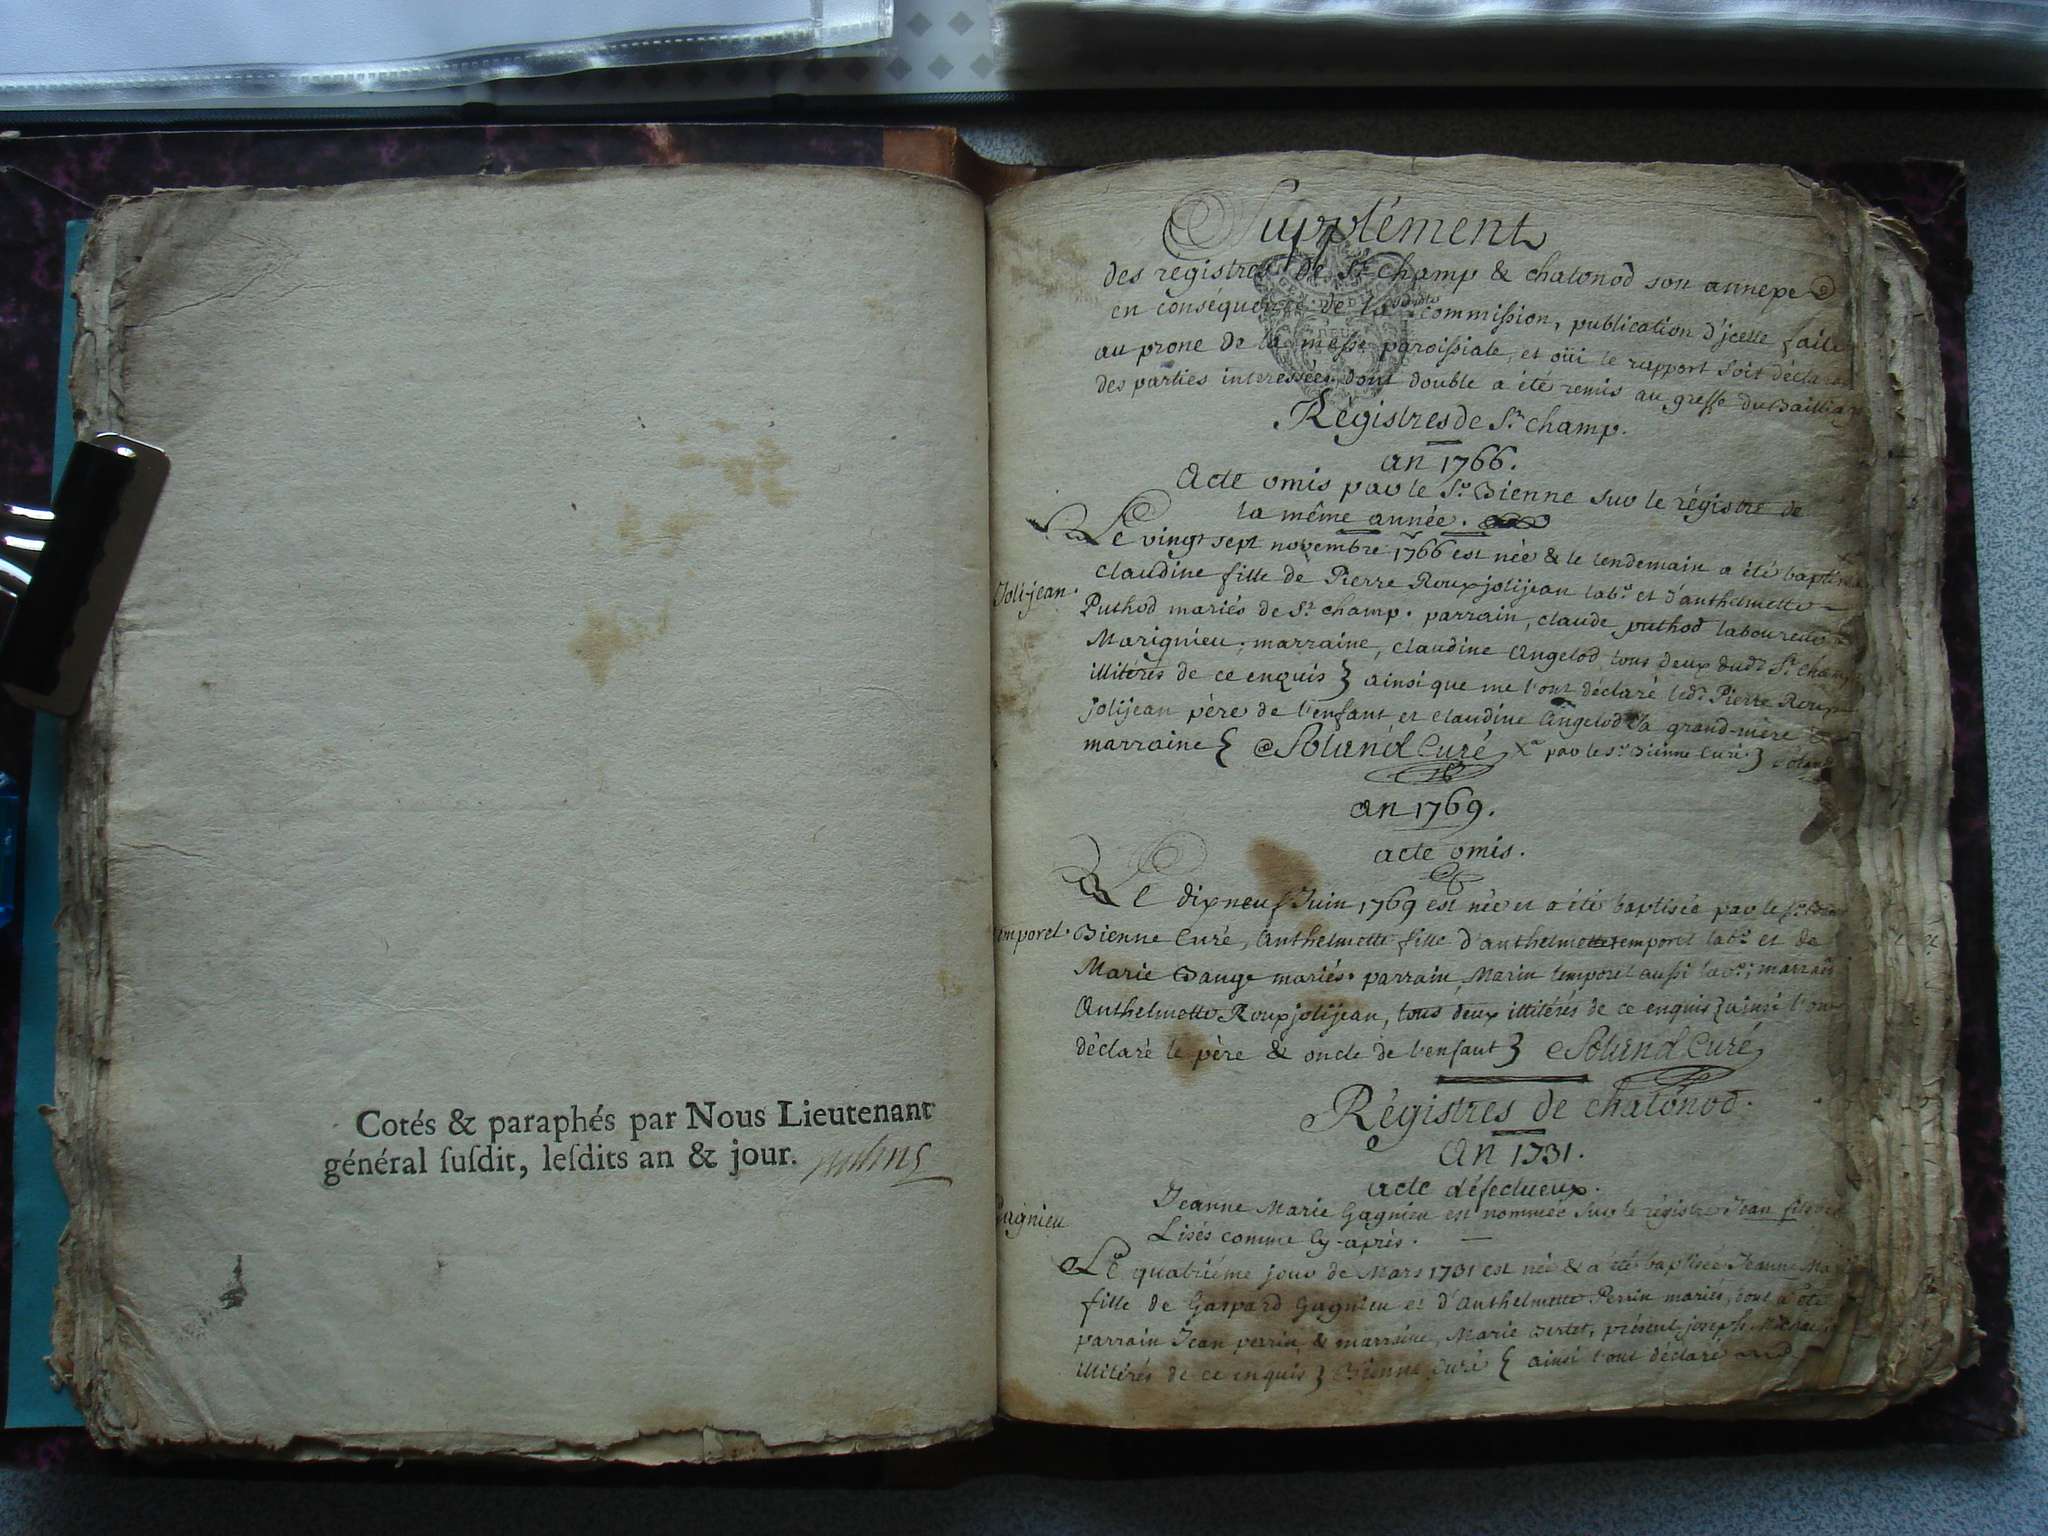 Cotés & paraphés par Nous Lieutenant
général ſuſdit, leſdits an & jour.
Supplément
des régistres de St champ & chatonod son annexe
en conséquence de la susdte commission, publication d'jcelle faite
au prone de la messe paroissiale, et oüi le rapport soit déclaraon
des parties interessées dont double a été remis au greffe du Bailliage
Régistres de St champ.
an 1766.
Acte omis par le Sr Bienne sur le régistre de
la même année.
Le vingt sept novembre 1766 est née & le lendemain a été baptisée
Joli-jean.
claudine fille de Pierre Rouxjolijean labr et d'anthelmette
Puthod mariés de St champ. parrain, claude puthod laboureur
Marignieu, marraine, claudine Angelod tous deux dudt St champ
illitérés de ce enquis } ainsi que me l'ont déclaré ledt Pierre Roux
jolijean père de l'enfant et claudine Angelod la grand-mère &
marraine { Solund Curé par le Sr Bienne Curé }
an 1769.
acte omis.
Le dixneuf Juin 1769 est née et a été baptisée par le Sr
temporel. Bienne Curé, Anthelmette fille d'anthelme temporel labr et de
Marie Dange mariés. parrain, Marin temporel aussi labr; marraine
Anthelmette Rouxjolijean, tous deux illitérés de ce enquis } ainsi l'ont
déclaré le père & oncle de l'enfant } Solund Curé
Régistres de chatonod.
An 1731.
acte défectueux.
Jeanne Marie Gagnieu est nommée sur le régistre Jean fils
Gagnieu
Lisés comme cy-après.
Le quatriéme jour de Mars 1731 est née & a été baptisée Jeanne Marie
fille de Gaspard Gagnieu et d'Anthelmette Perrin mariés, dont a été
parrain Jean perrin & marraine, Marie Bertet, présent joseph
illitérés de ce enquis } Bienne Curé { ainsi l'ont déclaré